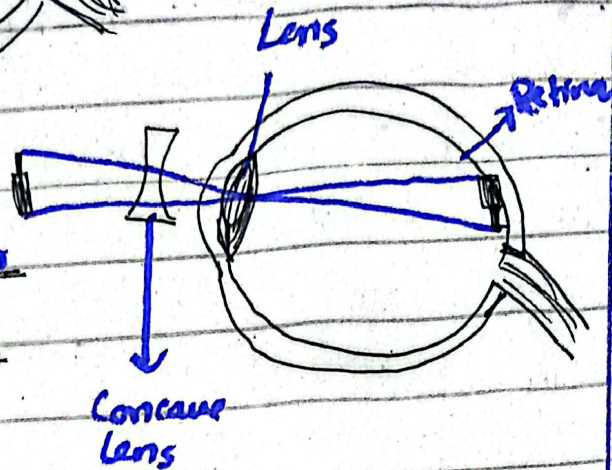 Lens
Retina
Concave
Lens